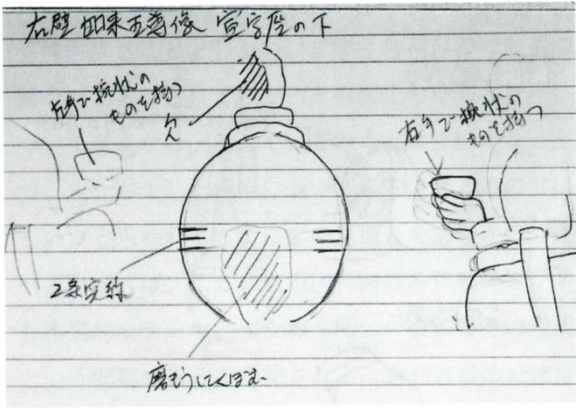 右壁 如来五尊像 宣字座の下
左手で椀状の
ものを持つ
欠
右手で椀状の
ものを持つ
2条突線
磨もうしてくぼむ